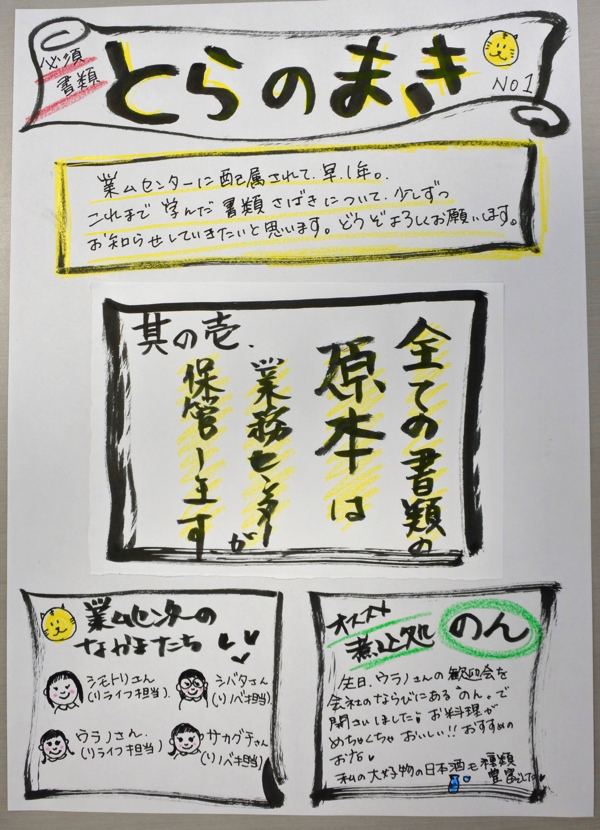 必須
書類
とらのまき
NO1
業ムセンターに配属されて、早、1年。
これまで 学んだ 書類さばきについて、少しずつ
お知らせしていきたいと思います。どうぞよろしくお願いします。
其の壱、
全ての書類の
原本は
業務センターが
保管します
業ムセンターの
なかまたち
シモトリさん
(リライフ担当)
シバタさん
(リノバ担当)
ウラノさん
(リライフ担当)
サカグチさん
(リノバ担当)
オススメ
煮込処
のん
先日、ウラノさんの歓迎会を
会社のならびにある“のん”で
開さいしました。お料理が
めちゃくちゃ おいしい!! おすすめの
お店♥
私の大好物の日本酒も種類
豊富でした♥